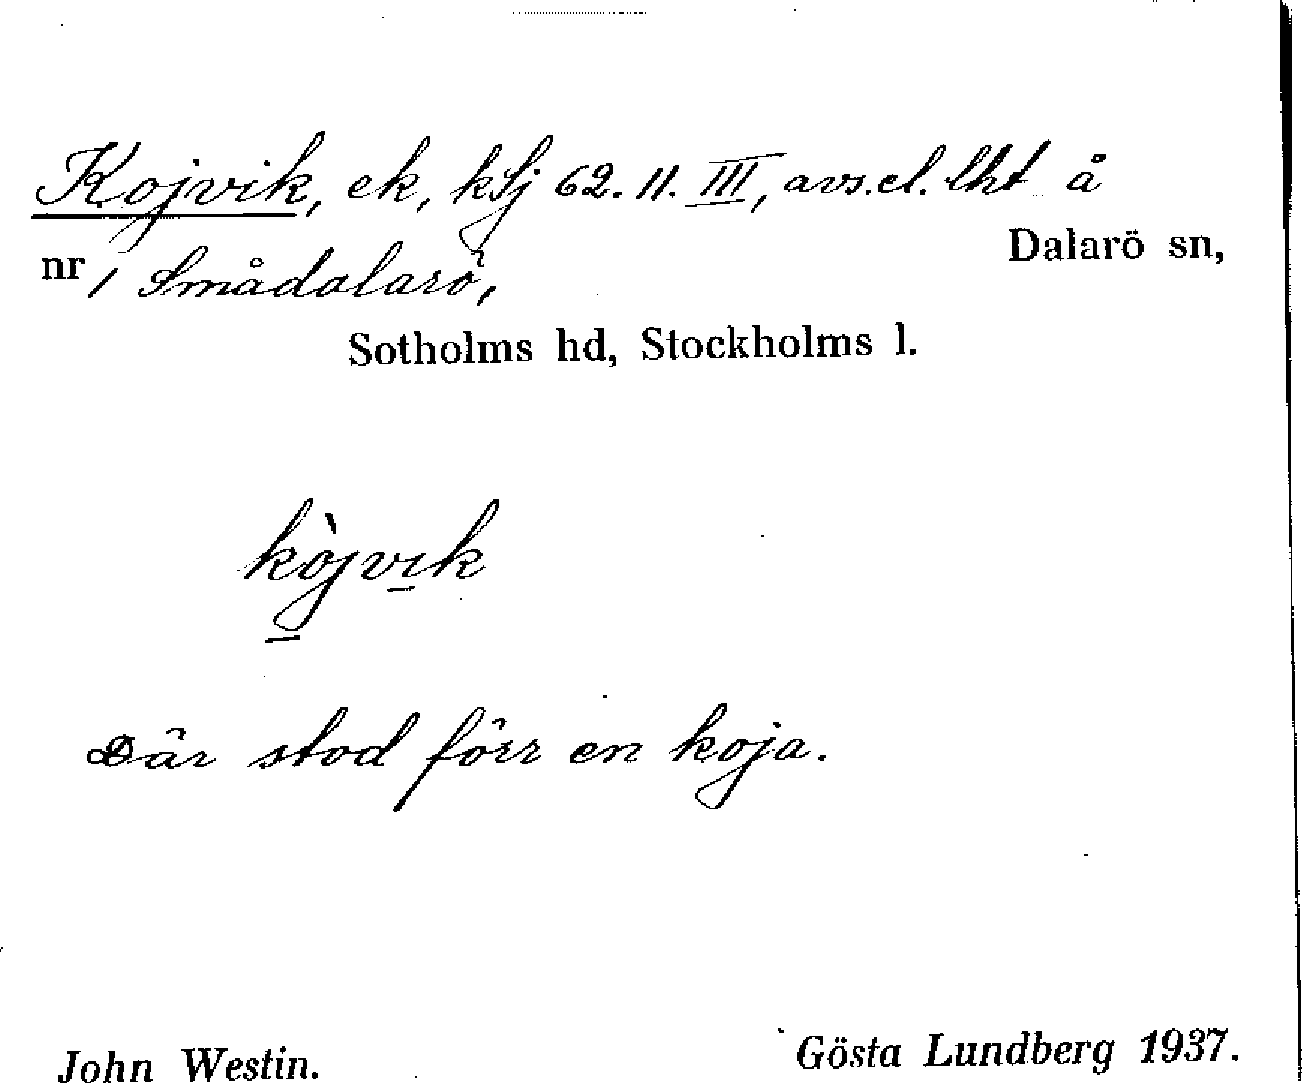 Kojvik, ek, kSj 62.11.III, avs.el. lht å
nr 1 Smådalarö, Dalarö sn,
Sotholms hd, Stockholms l.
kòjvik
Där stod förr en koja.
John Westin. Gösta Lundberg 1937.